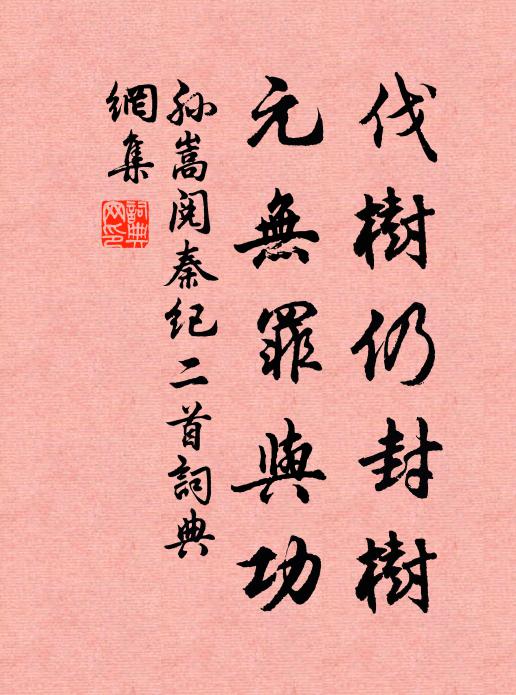 伐樹仍封樹
元無罪與功
孙嵩阅秦纪二首詞典
網集
詞典
网印